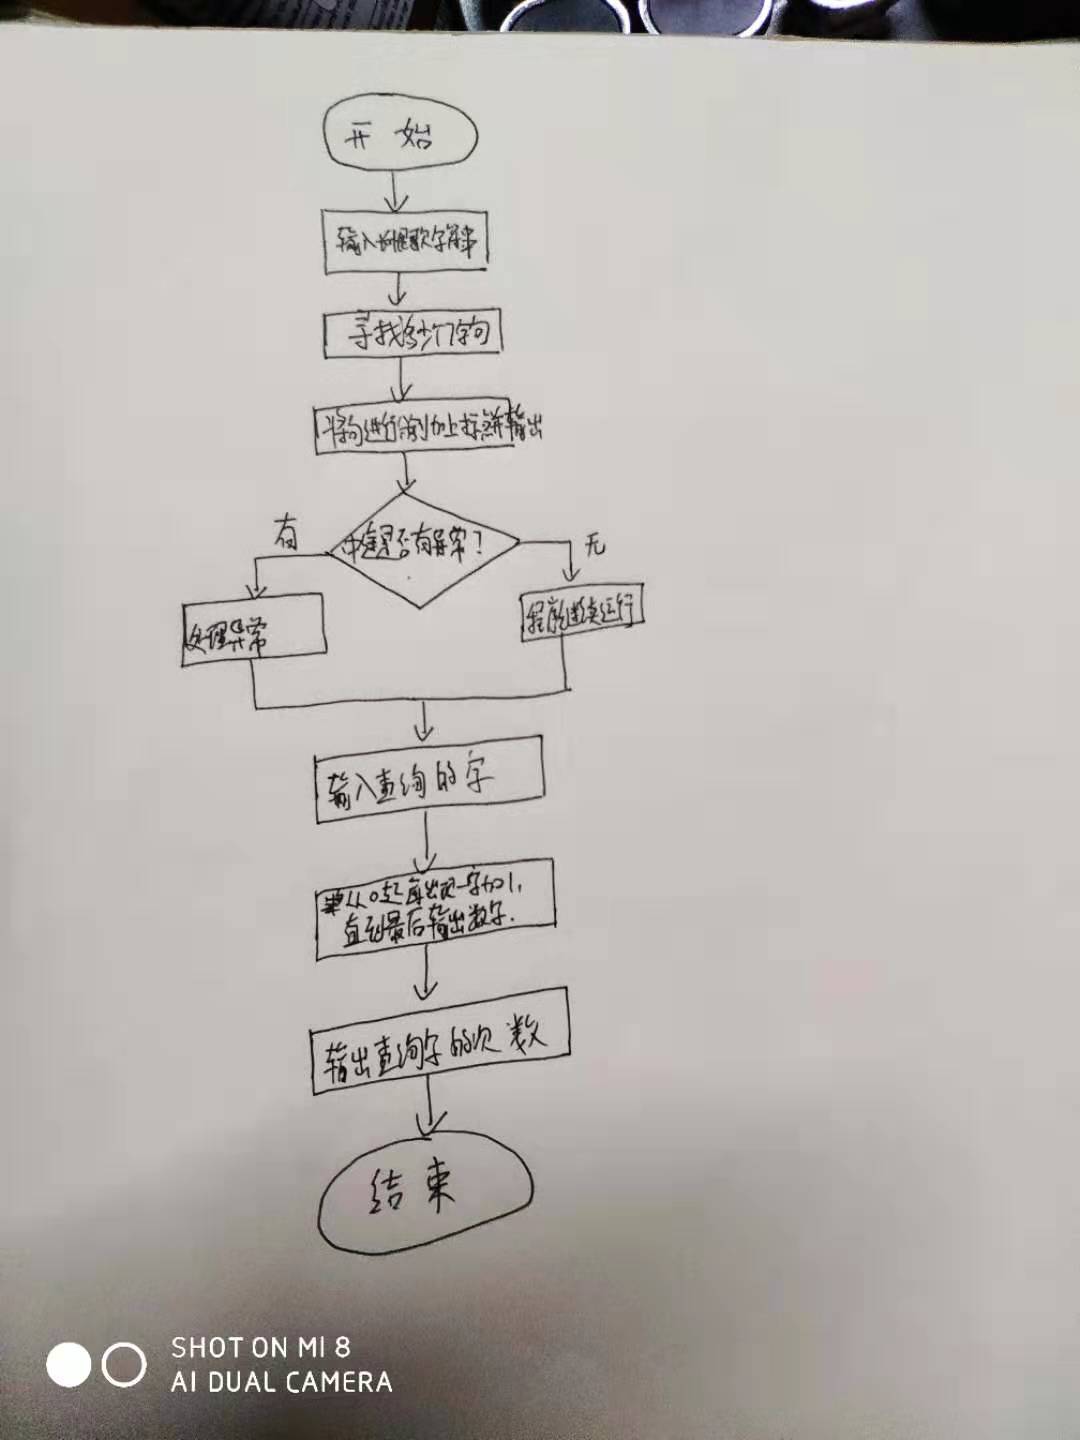 开始
输入长恨歌字符串
寻找多少个字句
将句进行分割加上标点并输出
中途是否有异常?
有
无
处理异常
程序继续运行
输入查询的字
从0起每出现一字加1,
直到最后输出数字.
输出查询字的次数
结束
SHOT ON MI 8
AI DUAL CAMERA